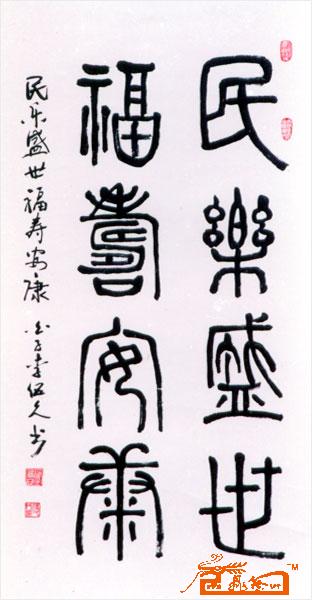 民樂盛世
福壽安康
民乐盛世福寿安康